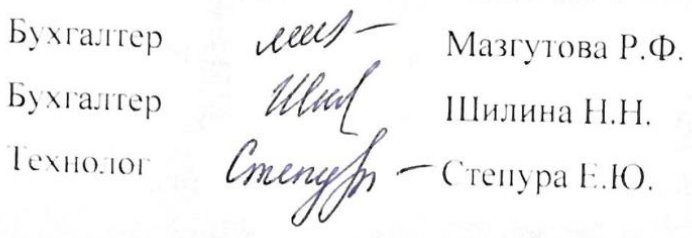 Бухгалтер Мазгутова Р.Ф.
Бухгалтер Шилина Н.Н.
Технолог Степура Е.Ю.